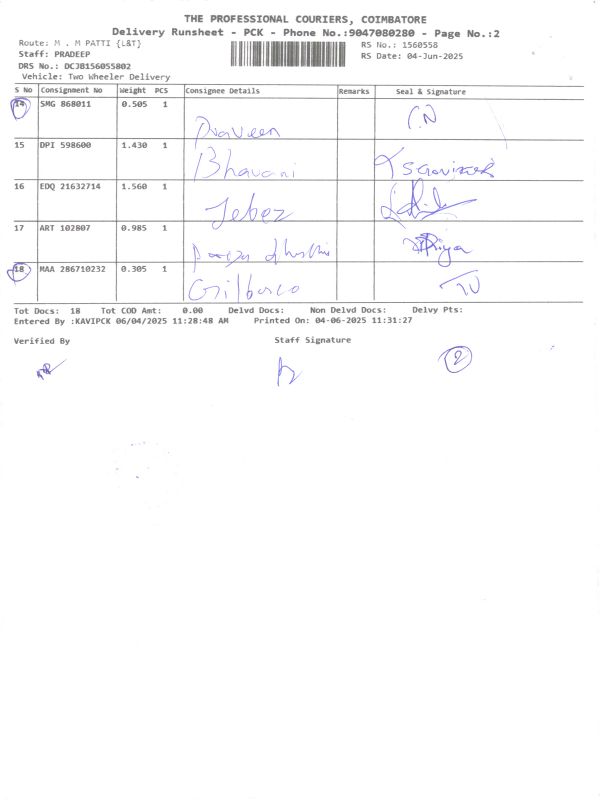 THE PROFESSIONAL COURIERS, COIMBATORE
Delivery Runsheet - PCK - Phone No.:9047080280 - Page No.:2
Route: M . M PATTI {L&T} RS No.: 1560558
Staff: PRADEEP RS Date: 04-Jun-2025
DRS No.: DCJB156055802
Vehicle: Two Wheeler Delivery
S No Consignment No Weight PCS Consignee Details Remarks Seal & Signature
14 SMG 868011 0.505 1
Praveen
15 DPI 598600 1.430 1
Bhavani
16 EDQ 21632714 1.560 1
Jebez
17 ART 102807 0.985 1
Priya
18 MAA 286710232 0.305 1
Tot Docs: 18 Tot COD Amt: 0.00 Delvd Docs: Non Delvd Docs: Delvy Pts:
Entered By :KAVIPCK 06/04/2025 11:28:48 AM Printed On: 04-06-2025 11:31:27
Verified By Staff Signature
2